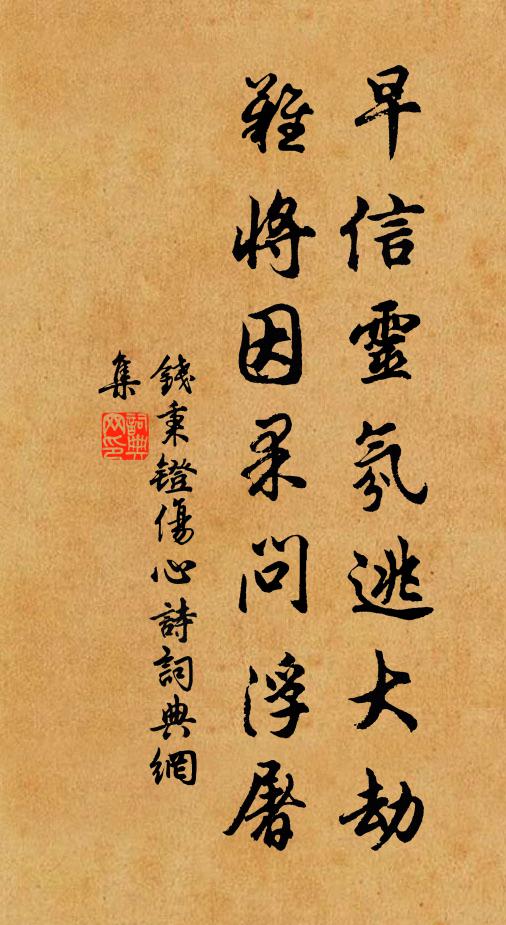 早信靈氛逃大劫
難將因果問浮屠
錢秉鐙傷心詩詞典網
集
詞典网印